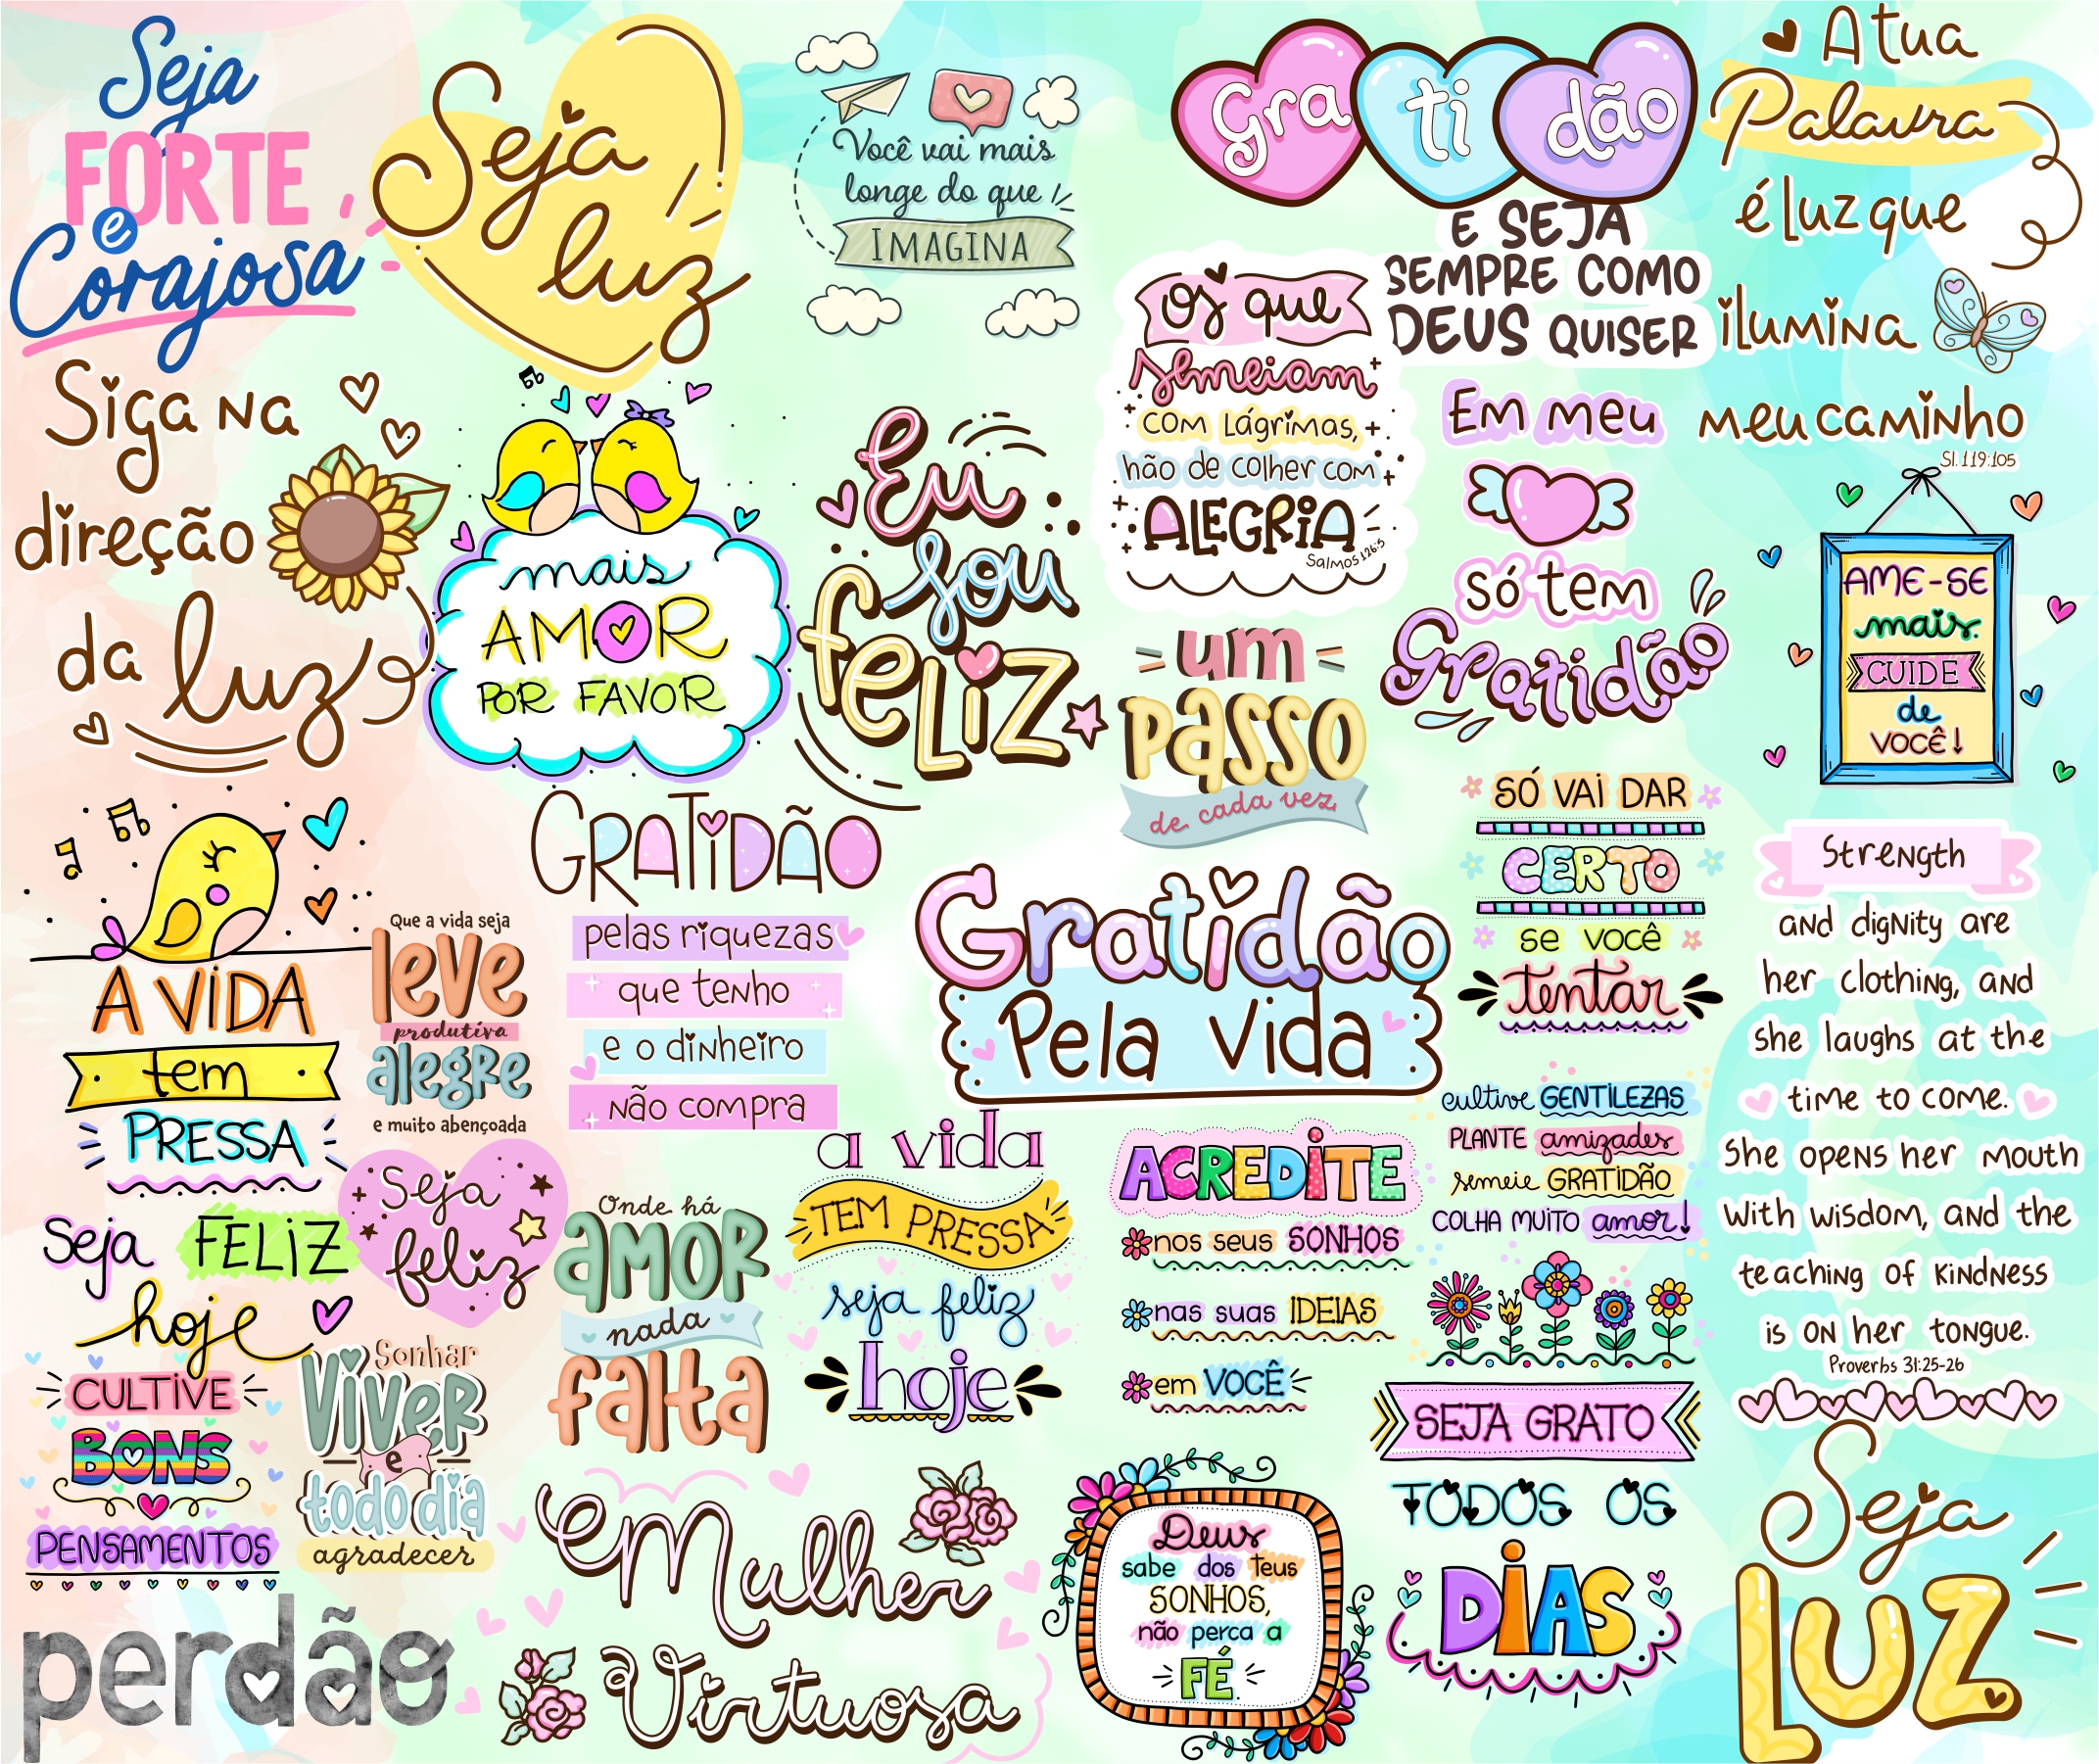 Seja
FORTE
e
Corajosa
Seja
luz
Você vai mais
longe do que
IMAGINA
Gra ti dão
E SEJA
SEMPRE COMO
DEUS QUISER
A tua
Palavra
é luz que
ilumina
meu caminho
Sl. 119:105
Siga na
direção
da luz
mais
AMOR
POR FAVOR
Eu
sou
feliz
Os que
semeiam
com lágrimas,
hão de colher com
ALEGRIA
Salmos 126:5
Em meu
só tem
Gratidão
AME-SE
mais.
CUIDE
de
VOCÊ!
um
passo
de cada vez,
A VIDA
tem
PRESSA
Seja FELIZ
hoje
Que a vida seja
leve
produtiva
alegre
e muito abençoada
GRATIDÃO
pelas riquezas
que tenho
e o dinheiro
não compra
Gratidão
Pela Vida
SÓ VAI DAR
CERTO
se você
tentar
Strength
and dignity are
her clothing, and
she laughs at the
time to come.
She opens her mouth
with wisdom, and the
teaching of kindness
is on her tongue.
Proverbs 31:25-26
Seja
feliz
Onde há
amor
nada
falta
a vida
TEM PRESSA
seja feliz
hoje
ACREDITE
nos seus SONHOS
nas suas IDEIAS
em VOCÊ
cultive GENTILEZAS
PLANTE amizades
semeie GRATIDÃO
COLHA MUITO amor!
CULTIVE
BONS
PENSAMENTOS
Sonhar
Viver
e
todo dia
agradecer
SEJA GRATO
TODOS OS
DIAS
perdão
Mulher
Virtuosa
Deus
sabe dos teus
SONHOS,
não perca a
FÉ.
Seja
LUZ